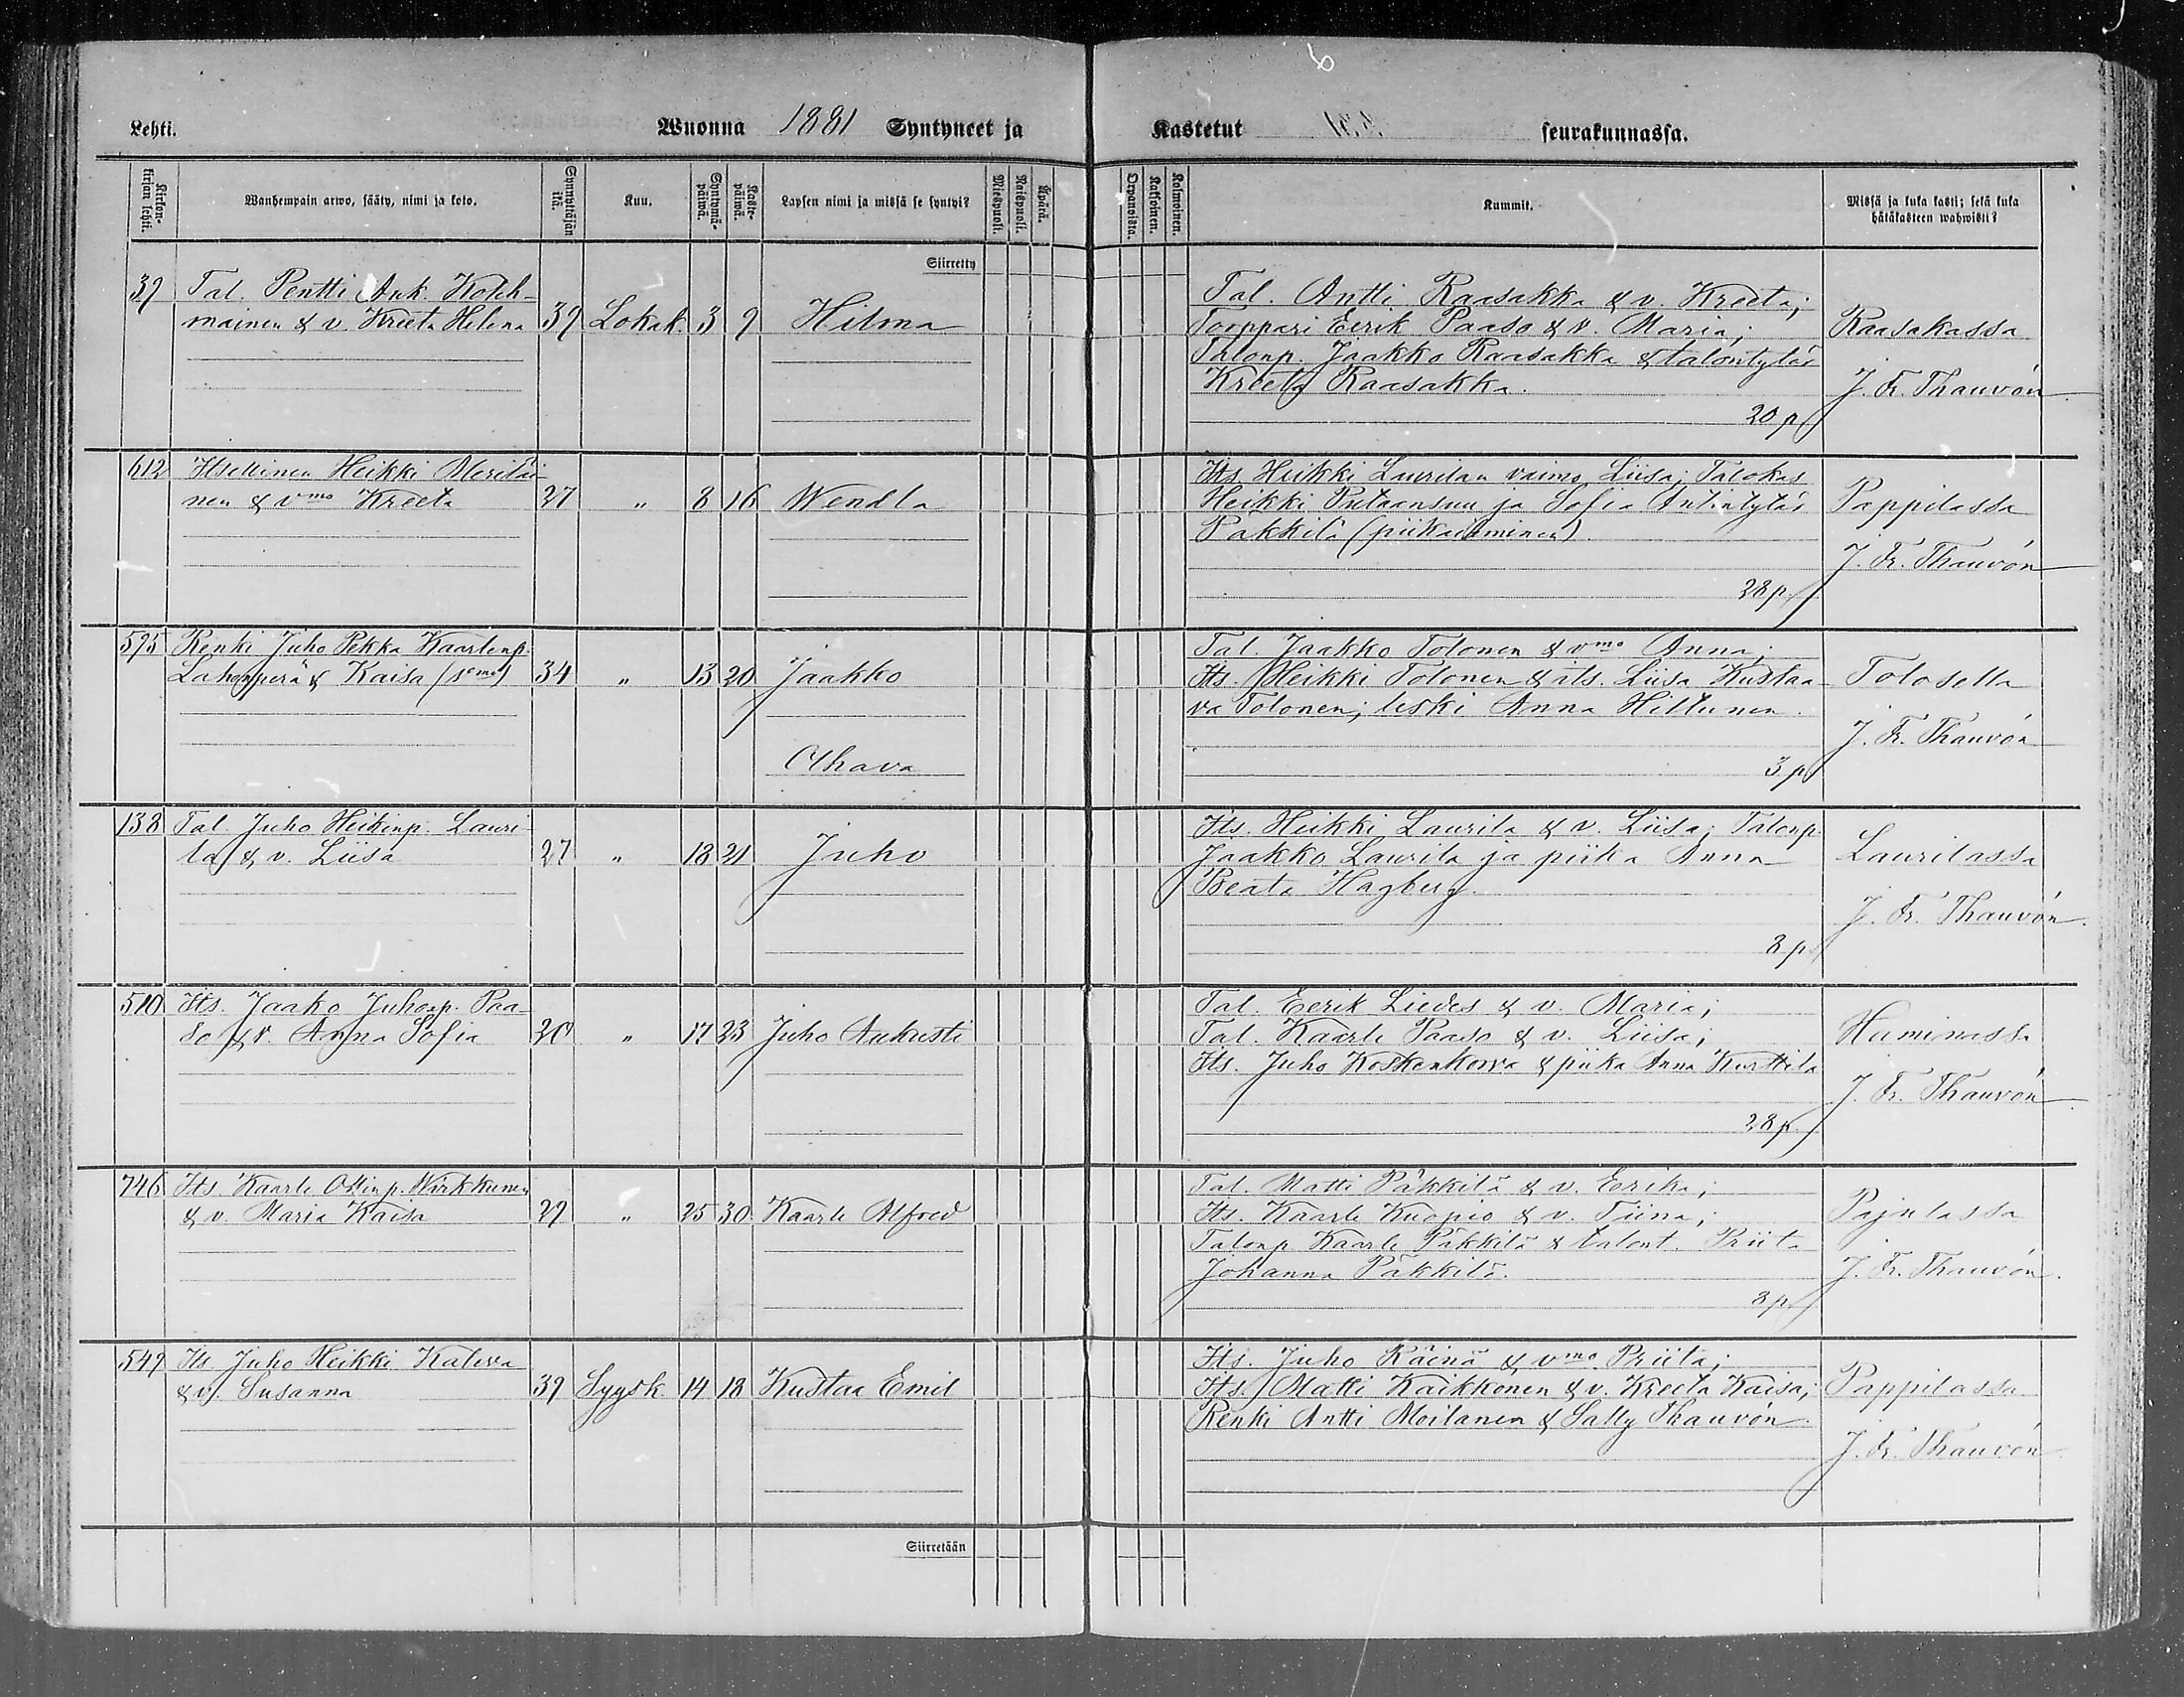 6
Lehti.
Wuonna 1881 Syntyneet ja
Kastetut seurakunnassa.
Kirkonkirjan lehti.
Wanhempain arwo, sääty, nimi ja koto.
Synnyttäjän ikä.
Kuu.
Syntymäpäiwä.
Kastepäiwä.
Lapsen nimi ja missä se syntyi?
Miespuoli.
Naispuoli.
Äpärä.
Kaksoinen.
Kolmoinen.
Kummit.
Missä ja kuka kasti; sekä kuka
hätäkasteen wahwisti?
Siirretty
39 Tal. Pentti Ank. Koleh-
mainen & v. Kreeta Helena 39 Lokak. 3 9 Hilma
Tal. Antti Raasakka & v. Kreeta;
Torppari Eerik Paaso & v. Maria;
Talonp. Jaakko Raasakka & talontytär
Kreeta Raasakka.
20 p
Raasakassa
J. Fr. Thauvón
612 Itsellinen Heikki Meriläi-
nen & vmo Kreeta 27 " 8 16 Wendla
Its. Heikki Laurilan vaimo Liisa; Talokas
Heikki Putaansuu ja Sofia Antintytär
Pakkila (piikaihminen)
28 p.
Pappilassa
J. Fr. Thauvón
595 Renki Juho Pekka Kaarlenp.
Lahonperä & Kaisa 34 " 13 20 Jaakko
Olhava
Tal. Jaakko Tolonen & vmo Anna;
Its. Heikki Tolonen & its. Liisa Kustaa-
va Tolonen; leski Anna Hiltunen.
3 p
Tolosella
J. Fr. Thauvón
138 Tal. Juho Heikinp. Lauri-
la & v. Liisa 27 " 18 21 Juho
Its. Heikki Laurila & v. Liisa; Talonp.
Jaakko Laurila ja piika Anna
Beata Hagberg.
3 p
Laurilassa
J. Fr. Thauvón.
510 Its. Jaako Juhonp. Paa-
so & v. Anna Sofia 20 " 17 23 Juho Aukusti
Tal. Eerik Liedes & v. Maria;
Tal. Kaarle Paaso & v. Liisa;
Its. Juho Koskenkorva & piika Anna Kurttila
28 p.
Haminassa
J. Fr. Thauvón
746 Its. Kaarle Ollinp. Wirkkunen
& v. Maria Kaisa 29 " 25 30 Kaarle Alfred
Tal. Matti Päkkilä & v. Eerika;
Its. Kaarle Kuopio & v. Tiina;
Talonp. Kaarle Päkkilä & talont. Priita
Johanna Päkkilä.
3 p
Pajulassa
J. Fr. Thauvón.
549 Its. Juho Heikki Kaleva
& v. Susanna 39 Syysk. 14 18 Kustaa Emil
Its. Juho Räinä & vmo Priita;
Its. Matti Kaikkonen & v. Kreeta Kaisa;
Renki Antti Moilanen & Sally Thauvón.
Pappilassa
J. Fr. Thauvón
Siirretään